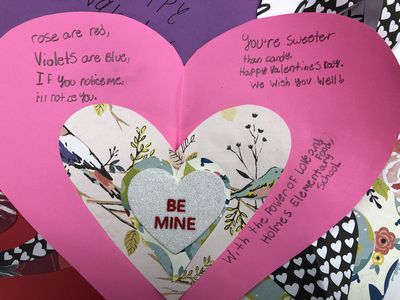 rose are red,
Violets are Blue,
If you notice me,
i'll notice you.
You're Sweeter
than candy.
Happy Valentine's Day.
We Wish You Well!
BE
MINE
With the Power of Love and
Holmes Elementary Food,
School